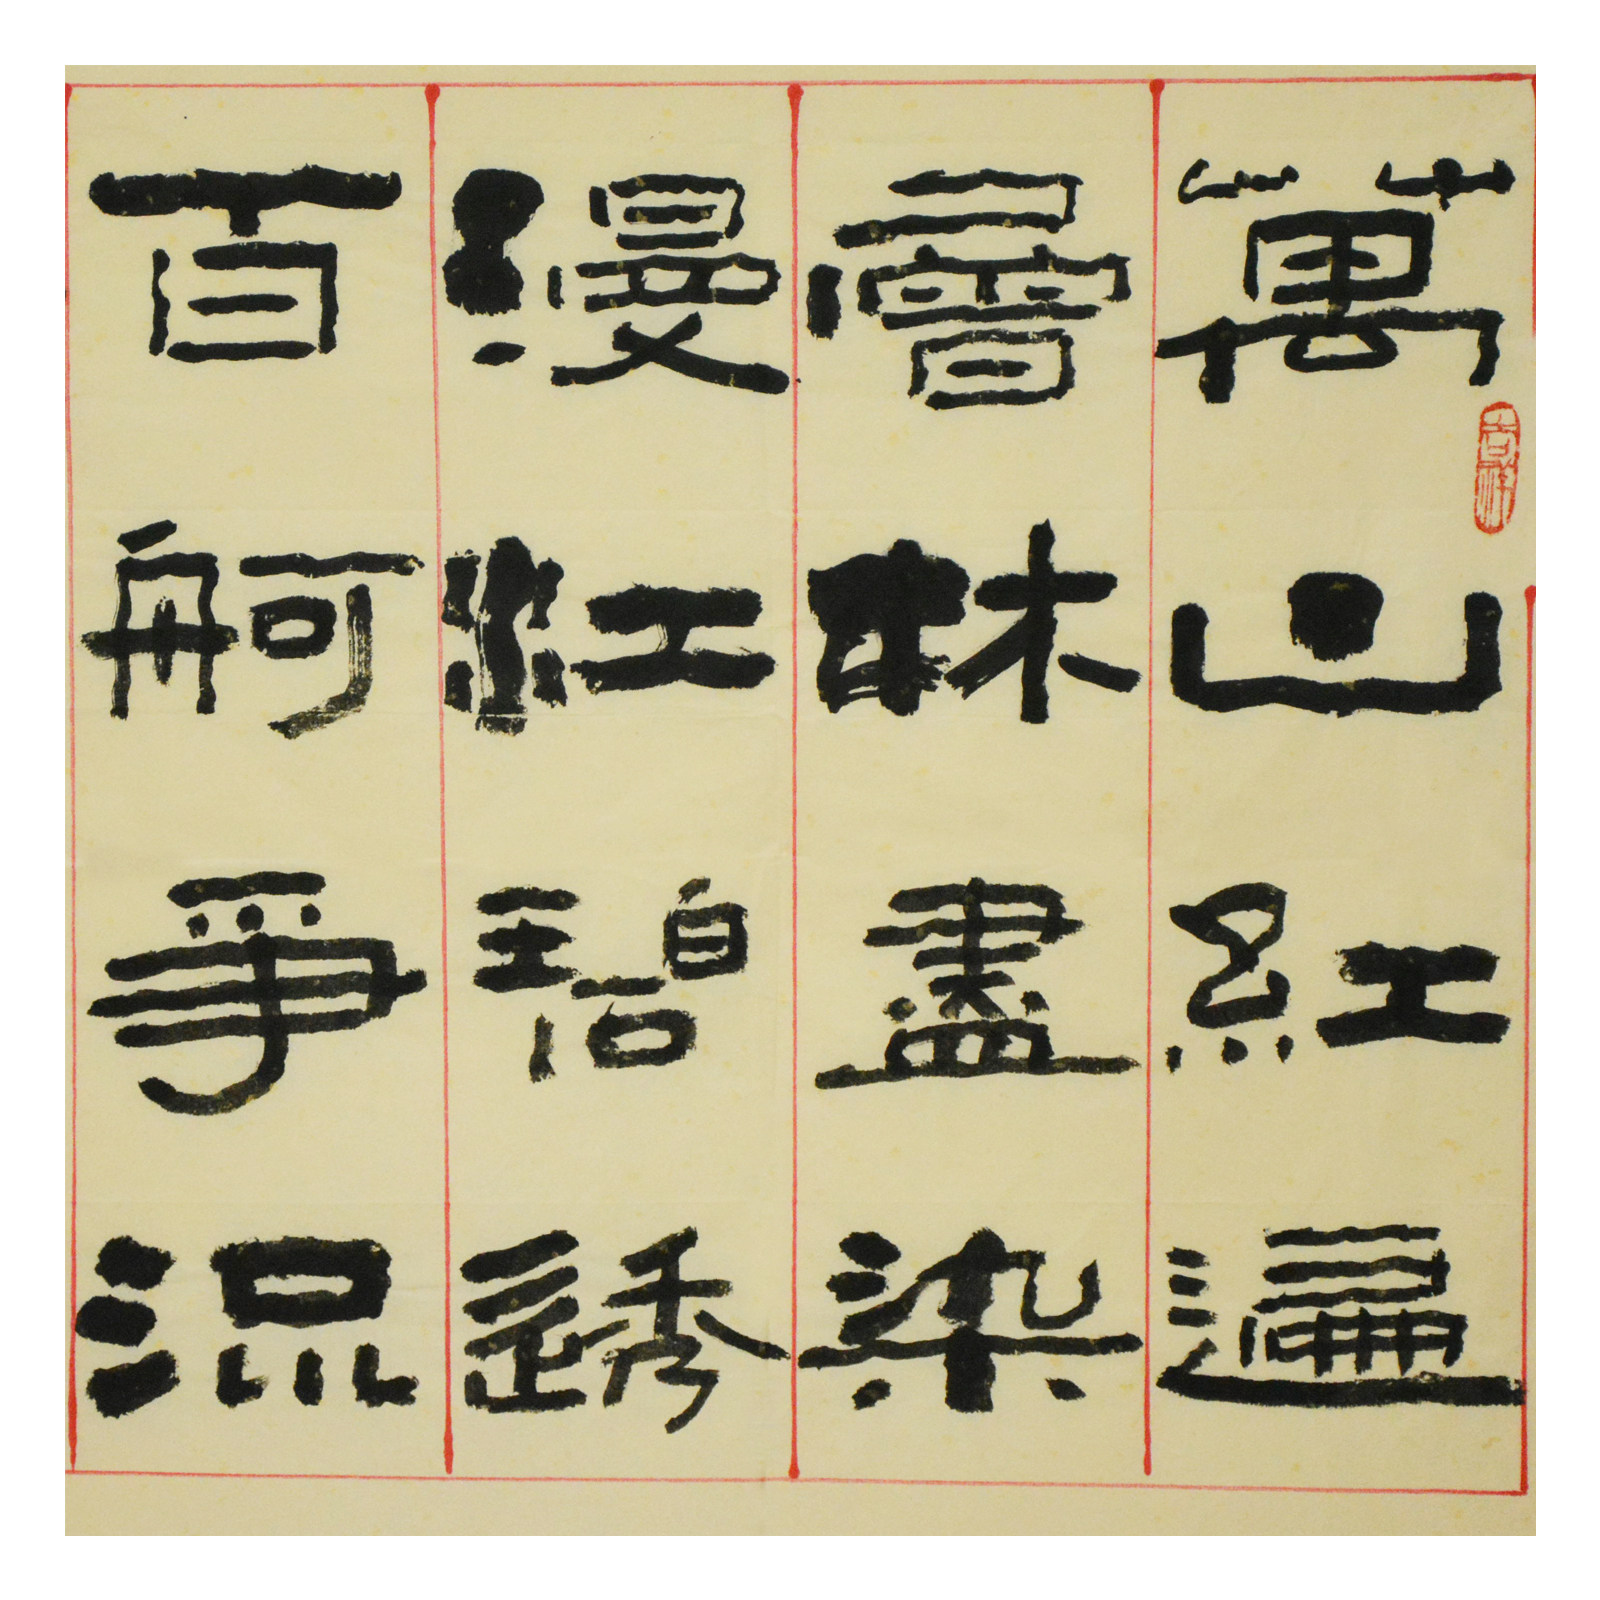 萬山紅遍
層林盡染
漫江碧透
百舸爭流
吉祥